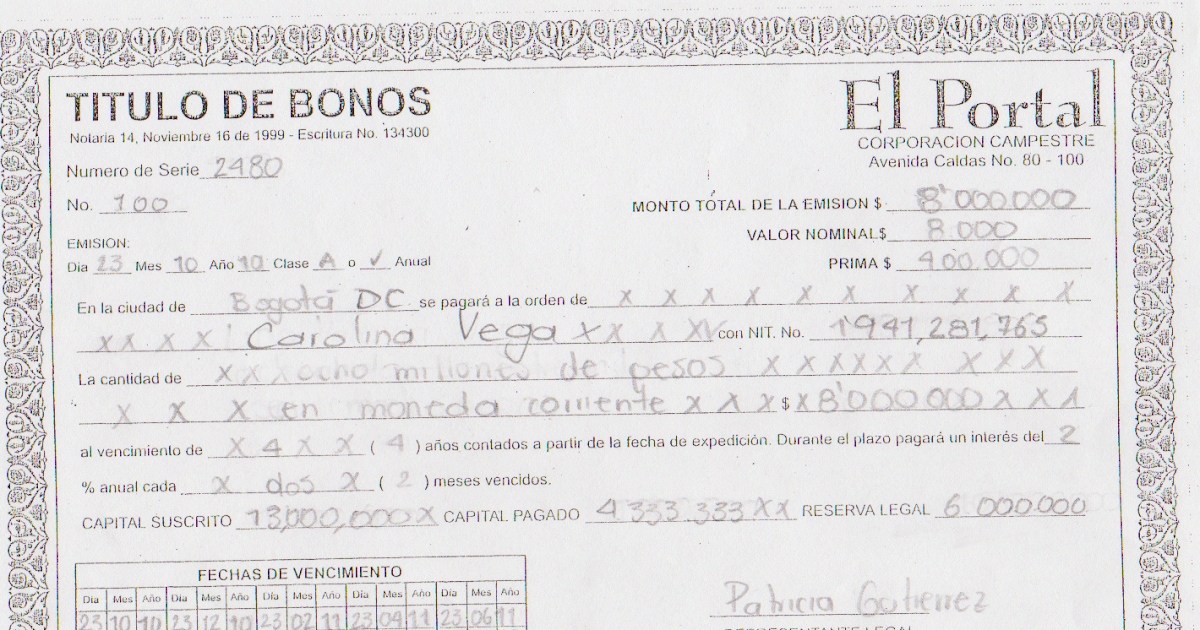 TITULO DE BONOS
Notaria 14, Noviembre 16 de 1999 - Escritura No. 134300
El Portal
CORPORACION CAMPESTRE
Avenida Caldas No. 80 - 100
Numero de Serie 2480
No. 100
MONTO TOTAL DE LA EMISION $ 8'000.000
VALOR NOMINAL$ 8.000
PRIMA $ 400.000
EMISION:
Dia 23 Mes 10 Año 10 Clase A o ✓ Anual
En la ciudad de Bogotá DC se pagará a la orden de x x x x x x x x x x
xx x x Carolina Vega xx x x con NIT. No. 1'941,281,765
La cantidad de x x x ocho millones de pesos x x x x x x x x x
x x x en moneda corriente x x x $ x 8'000000 x x x
al vencimiento de x 4 x x ( 4 ) años contados a partir de la fecha de expedición. Durante el plazo pagará un interés del 2
% anual cada x dos x ( 2 ) meses vencidos.
CAPITAL SUSCRITO 13,000,000x CAPITAL PAGADO 4.333.333 xx RESERVA LEGAL 6.000000
FECHAS DE VENCIMIENTO
Dia Mes Año Dia Mes Año Dia Mes Año Dia Mes Año Dia Mes Año
23 10 10 23 12 10 23 02 11 23 04 11 23 06 11
Patricia Gutierrez